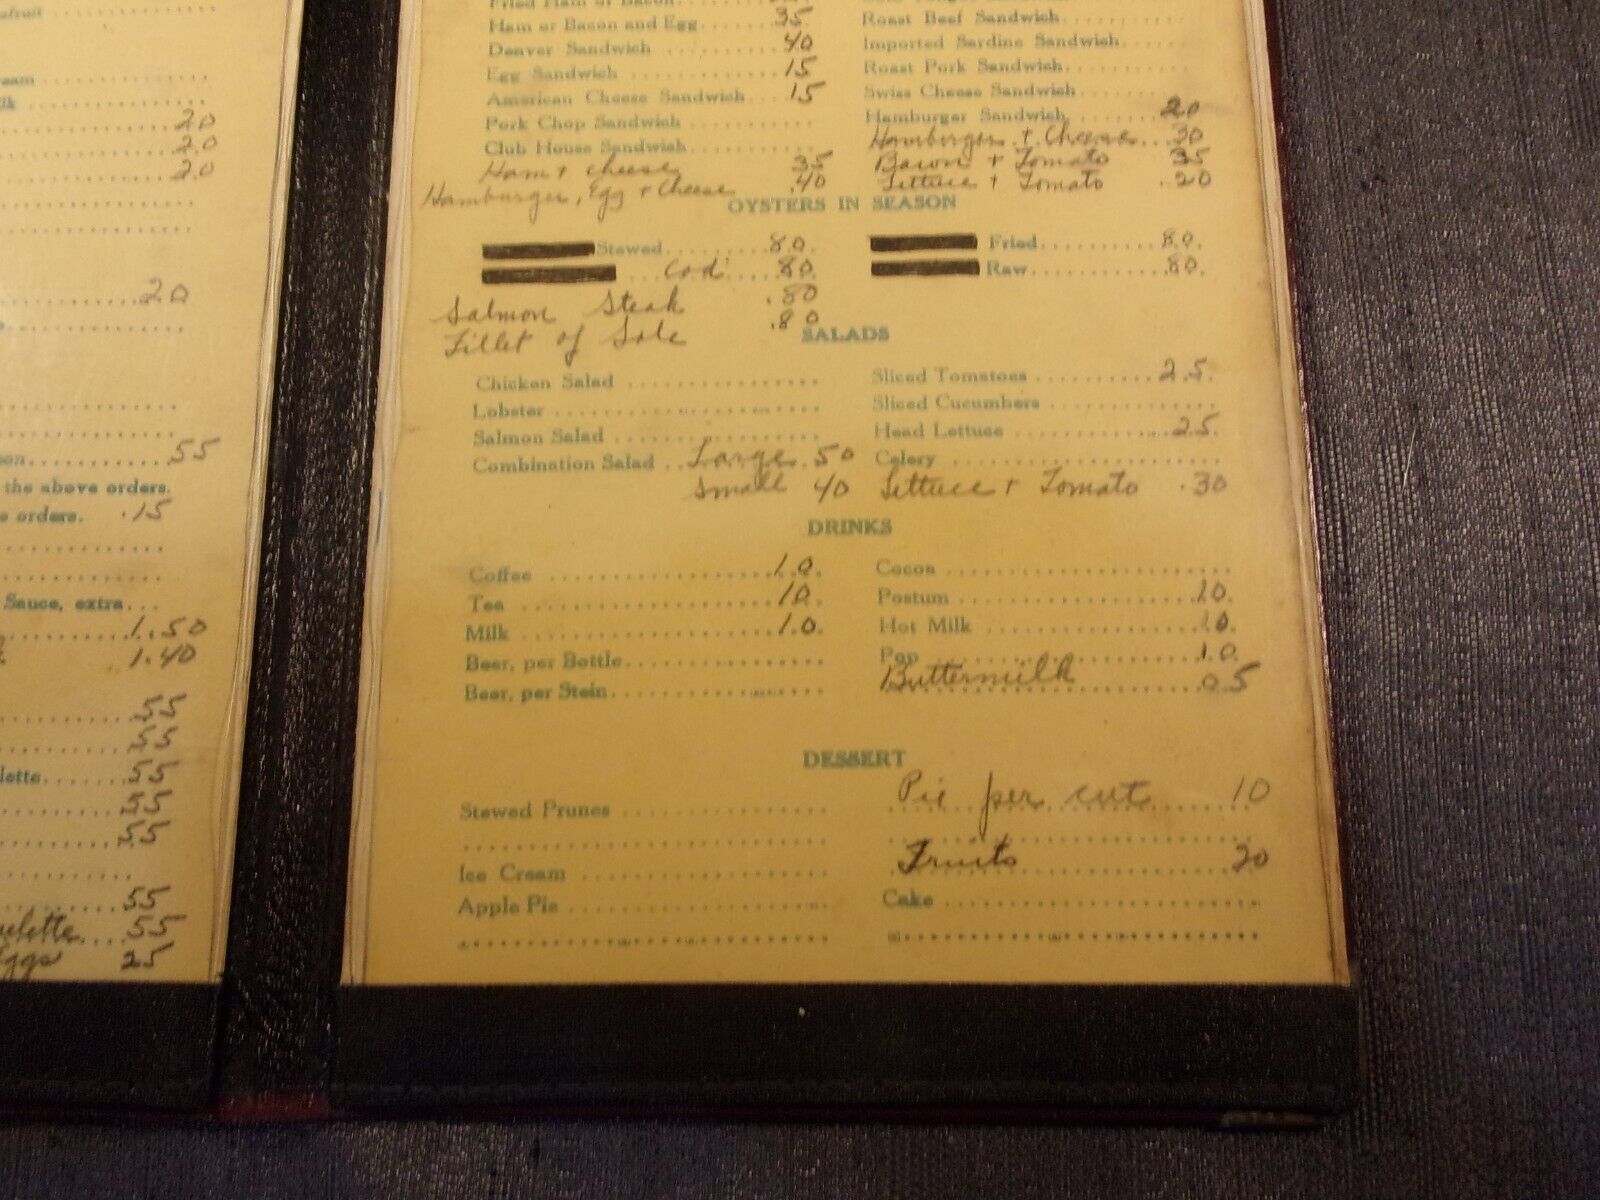 20
20
20
20
55
the above orders.
orders. .15
Sauce, extra...
1.50
1.40
55
55
55
55
55
55
55
Eggs 25
Fried Ham or Bacon
Ham or Bacon and Egg 35
Denver Sandwich 40
Egg Sandwich 15
American Cheese Sandwich 15
Pork Chop Sandwich
Club House Sandwich
Ham + cheese 35
Hamburger, Egg + Cheese .40
Roast Beef Sandwich
Imported Sardine Sandwich
Roast Pork Sandwich
Swiss Cheese Sandwich
Hamburger Sandwich 20
Hamburger + Cheese 30
Bacon + Tomato 35
Lettuce + Tomato .20
OYSTERS IN SEASON
Stewed 80
Cod 80
Salmon Steak .80
Fillet of Sole .80
Fried 80
Raw 80
SALADS
Chicken Salad
Lobster
Salmon Salad
Combination Salad Large 50
Small 40
Sliced Tomatoes 25
Sliced Cucumbers
Head Lettuce 25
Celery
Lettuce + Tomato .30
DRINKS
Coffee 10
Tea 10
Milk 10
Beer, per Bottle
Beer, per Stein
Cocoa
Postum 10
Hot Milk 10
Pop 10
Buttermilk 05
DESSERT
Stewed Prunes
Ice Cream
Apple Pie
Pie per cut 10
Fruits 20
Cake